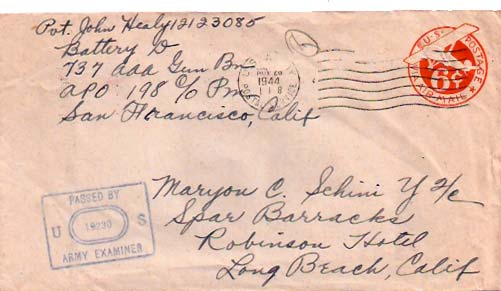 Pvt. John Healy 12123085
Battery D
737 aaa Gun Bn
APO 198 C/o Pm
San Francisco, Calif
1944
POSTAL SERVICE
U.S. POSTAGE
6¢
AIR MAIL
Maryon C. Schini Y 2/c
Spar Barracks
Robinson Hotel
Long Beach, Calif
PASSED BY
U 19230 S
ARMY EXAMINER